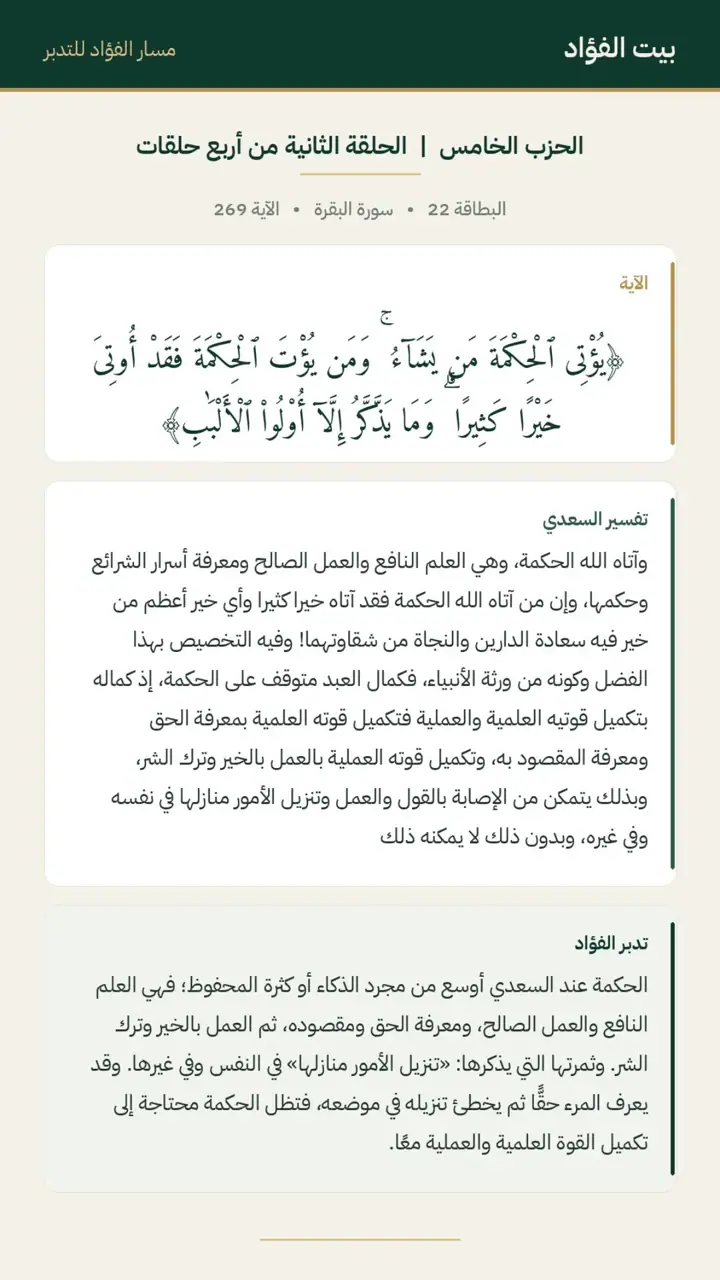 بيت الفؤاد
مسار الفؤاد للتدبر
الحزب الخامس | الحلقة الثانية من أربع حلقات
البطاقة 22 • سورة البقرة • الآية 269
الآية
﴿يُؤْتِى ٱلْحِكْمَةَ مَن يَشَآءُ ۚ وَمَن يُؤْتَ ٱلْحِكْمَةَ فَقَدْ أُوتِىَ
خَيْرًا كَثِيرًا ۗ وَمَا يَذَّكَّرُ إِلَّآ أُو۟لُوا۟ ٱلْأَلْبَـٰبِ﴾
تفسير السعدي
وآتاه الله الحكمة، وهي العلم النافع والعمل الصالح ومعرفة أسرار الشرائع
وحكمها، وإن من آتاه الله الحكمة فقد آتاه خيرا كثيرا وأي خير أعظم من
خير فيه سعادة الدارين والنجاة من شقاوتهما! وفيه التخصيص بهذا
الفضل وكونه من ورثة الأنبياء، فكمال العبد متوقف على الحكمة، إذ كماله
بتكميل قوتيه العلمية والعملية فتكميل قوته العلمية بمعرفة الحق
ومعرفة المقصود به، وتكميل قوته العملية بالعمل بالخير وترك الشر،
وبذلك يتمكن من الإصابة بالقول والعمل وتنزيل الأمور منازلها في نفسه
وفي غيره، وبدون ذلك لا يمكنه ذلك
تدبر الفؤاد
الحكمة عند السعدي أوسع من مجرد الذكاء أو كثرة المحفوظ؛ فهي العلم
النافع والعمل الصالح، ومعرفة الحق ومقصوده، ثم العمل بالخير وترك
الشر. وثمرتها التي يذكرها: «تنزيل الأمور منازلها» في النفس وفي غيرها. وقد
يعرف المرء حقًّا ثم يخطئ تنزيله في موضعه، فتظل الحكمة محتاجة إلى
تكميل القوة العلمية والعملية معًا.